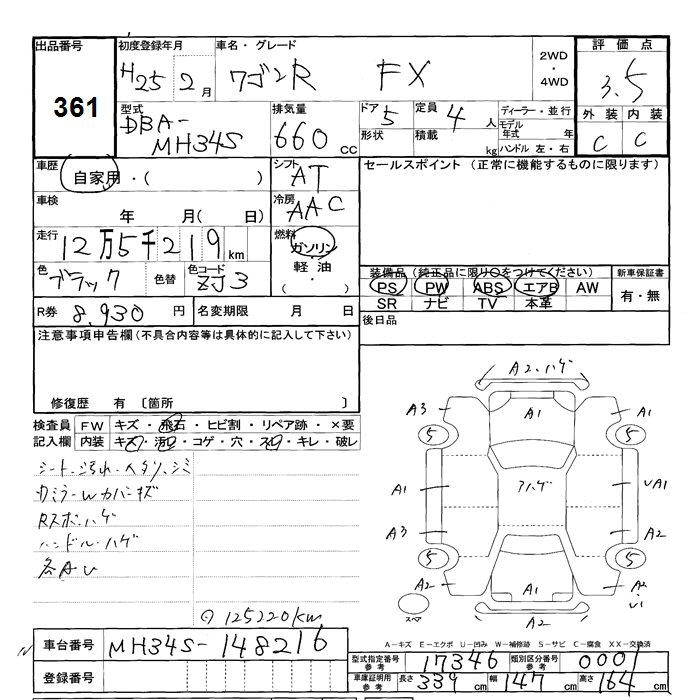 出品番号 初度登録年月 車名・グレード 2WD・4WD 評価点
361 H25 2月 ワゴンR FX 3.5
型式 排気量 ドア 5 定員 4人 ディーラー・並行 外装 内装
DBA-MH34S 660cc 形状 積載 kg モデル年式 年 ハンドル 左・右 C C
車歴 自家用・( ) シフト AT セールスポイント (正常に機能するものに限ります)
車検 年 月( 日) 冷房 AAC
走行 12万5千219km 燃料 ガソリン 軽油 ( ・ )
色 ブラック 色替 色コード ZJ3 装備品 (純正品に限り○をつけてください) 新車保証書
PS PW ABS エアB AW 有・無
R券 8,930円 名変期限 月 日 SR ナビ TV 本革
注意事項申告欄(不具合内容等は具体的に記入して下さい) 後日品
修復歴 有 〔箇所 〕
検査員 FW キズ・飛石・ヒビ割・リペア跡・×要
記入欄 内装 キズ・汚れ・コゲ・穴・スレ・キレ・破レ
シート汚れ・ヘタリ、シミ
カミラーWカバーキズ
Rスポハゲ
ハンドルハゲ
各AU
125220km
A2.ハゲ
A3 A1 A1
5 5
A1 アハゲ UA1
A3 A2
5 5
A2 A1 A2 U1
スペア A2
A-キズ E-エクボ U-凹み W-補修跡 S-サビ C-腐食 XX-交換済
車台番号 MH34S-148216
登録番号
型式指定番号 参考 17346 類別区分番号 参考 0001
車庫証明用 参考 長さ 339cm 幅 147cm 高さ 164cm